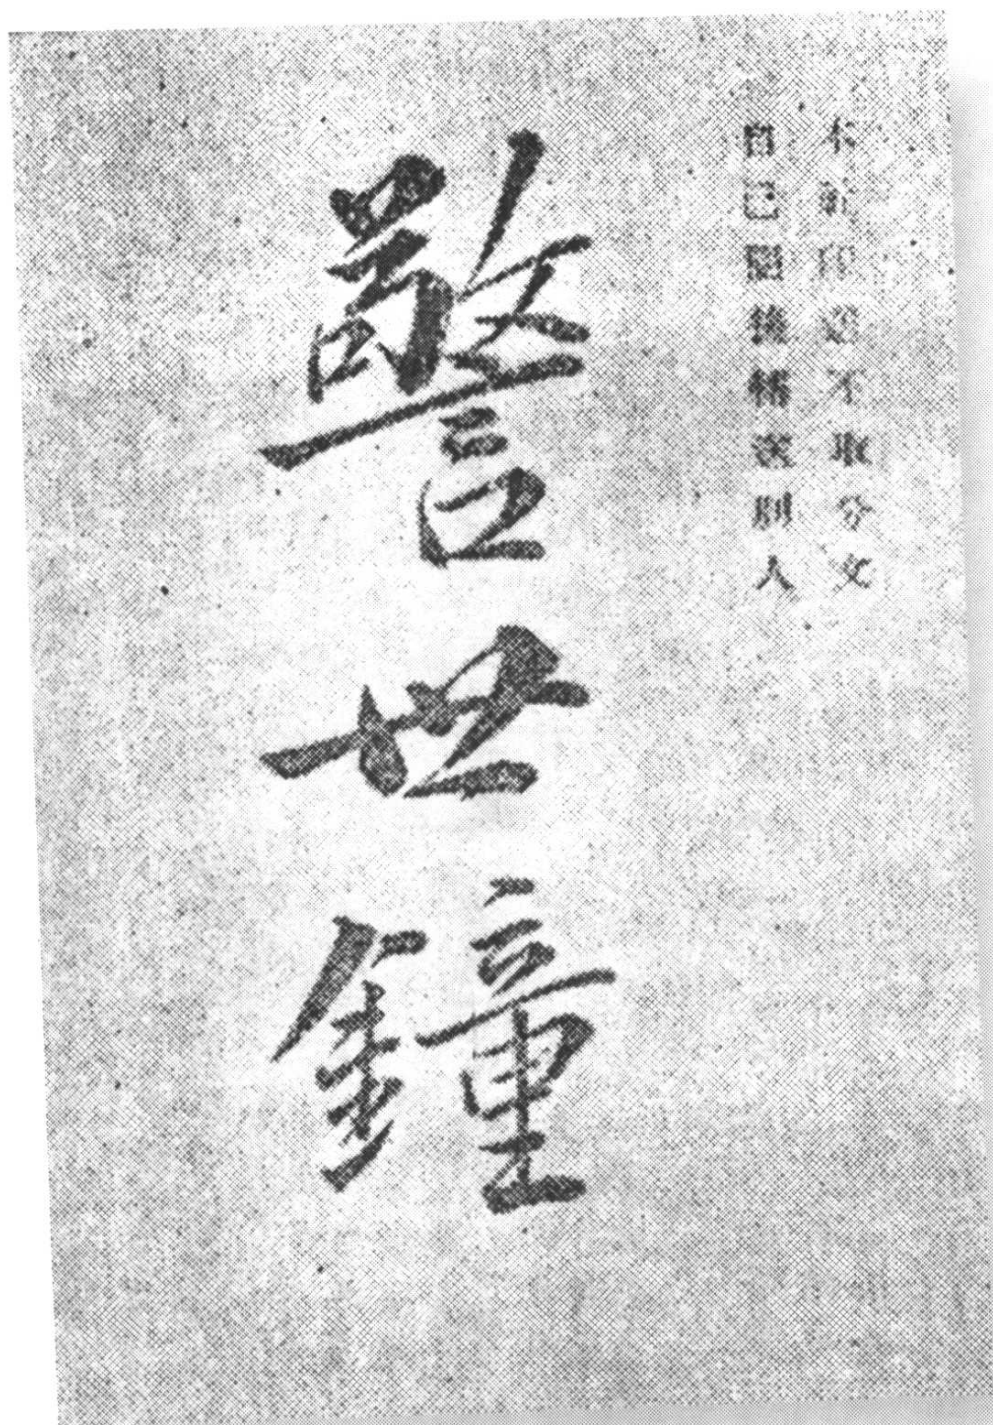 本印送不取分文
自己閱後轉送別人
警世鐘